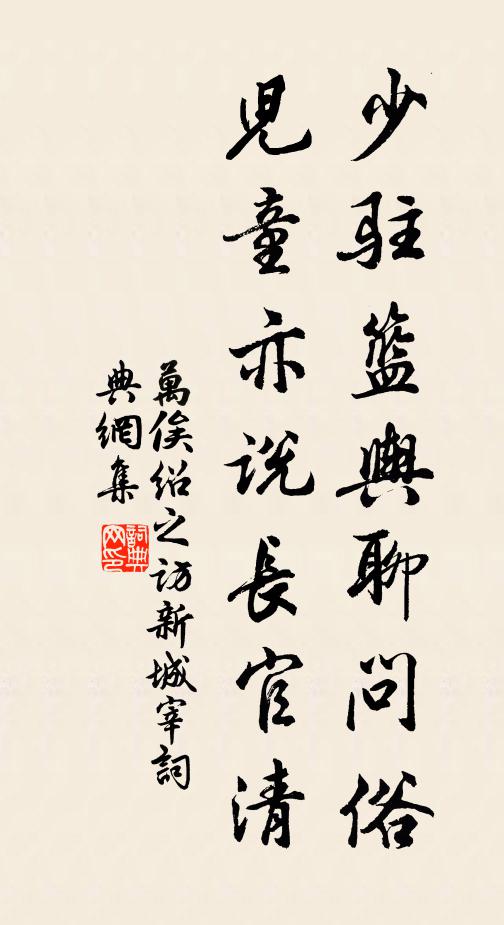 少駐籃輿聊問俗
兒童亦説長官清
萬俟紹之訪新城宰詞
典網集
詞典
网印